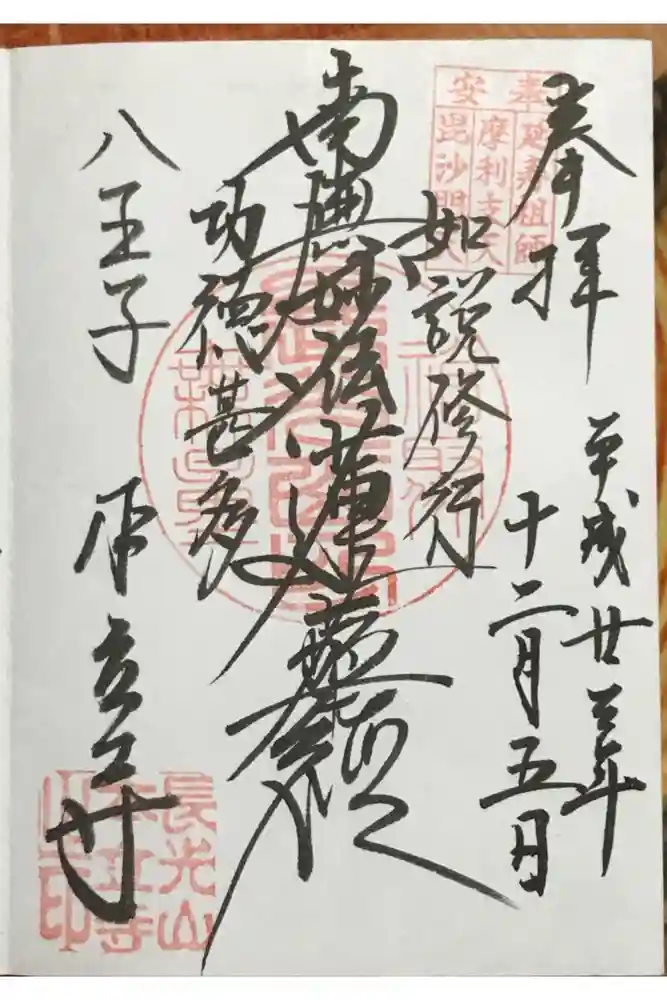 奉拝
平成廿三年
十二月五日
奉安
延寿祖師
摩利支天
毘沙門天
如説修行
南無妙法蓮華経
功徳甚多
八王子
本立寺
長光山
本立寺
之印